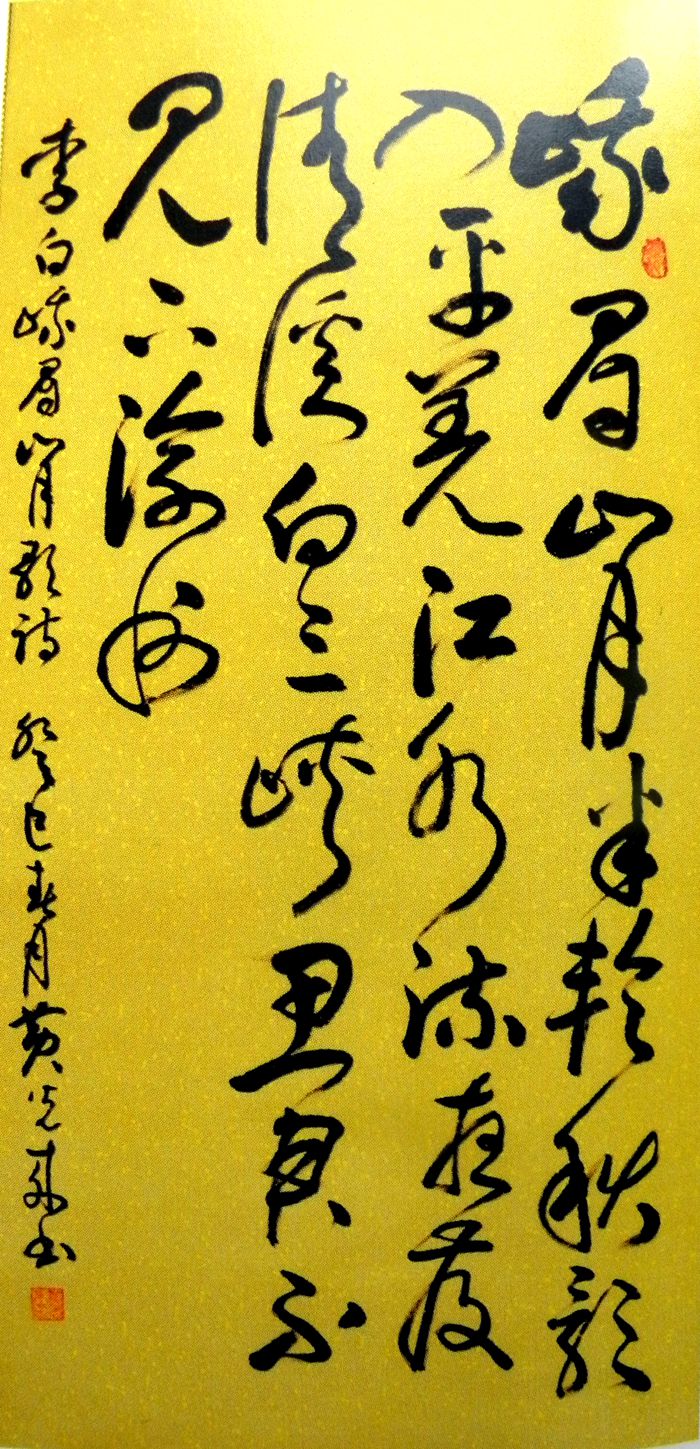 峨眉山月半輪秋影
入平羌江水流夜發
清溪向三峽思君不
見下渝州
李白峨眉山月歌詩 癸巳春月黃光書